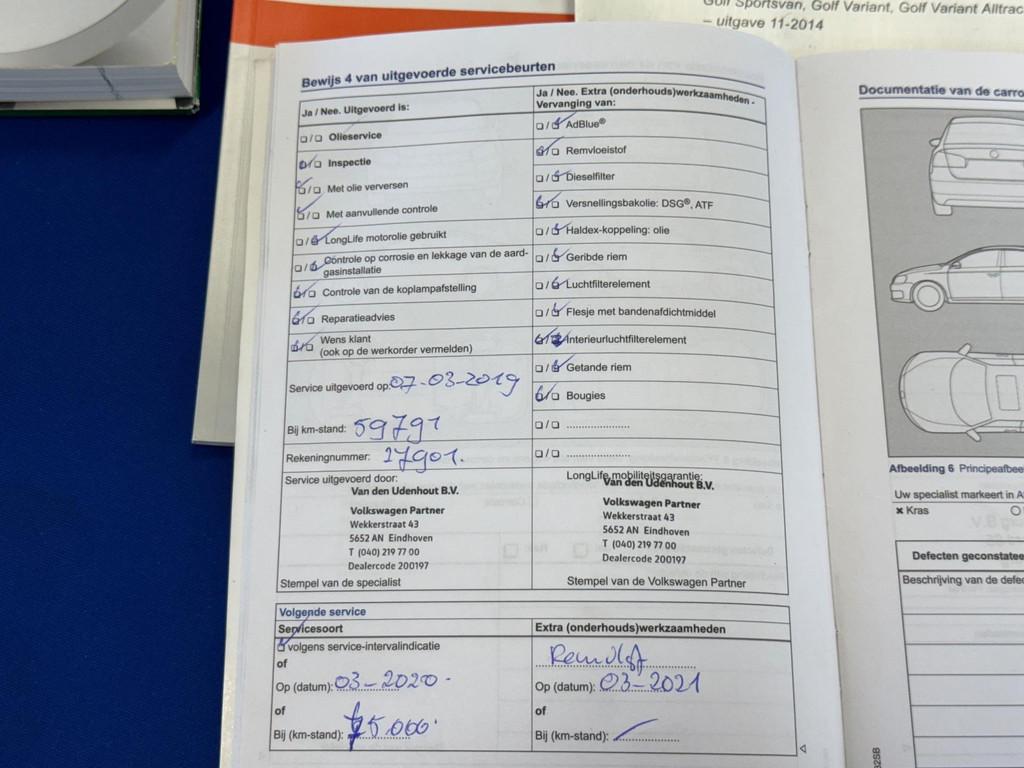 Golf Sportsvan, Golf Variant, Golf Variant Alltrac
– uitgave 11-2014
Bewijs 4 van uitgevoerde servicebeurten
Ja / Nee. Uitgevoerd is:
Ja / Nee. Extra (onderhouds)werkzaamheden -
Vervanging van:
□/□ Olieservice
□/□ AdBlue®
□/□ Inspectie
□/□ Remvloeistof
□/□ Met olie verversen
□/□ Dieselfilter
□/□ Met aanvullende controle
□/□ Versnellingsbakolie: DSG®, ATF
□/□ LongLife motorolie gebruikt
□/□ Haldex-koppeling: olie
□/□ Controle op corrosie en lekkage van de aard-
gasinstallatie
□/□ Geribde riem
□/□ Controle van de koplampafstelling
□/□ Luchtfilterelement
□/□ Reparatieadvies
□/□ Flesje met bandenafdichtmiddel
□/□ Wens klant
(ook op de werkorder vermelden)
□/□ Interieurluchtfilterelement
□/□ Getande riem
Service uitgevoerd op: 07-03-2019
□/□ Bougies
Bij km-stand: 59791
□/□ .....................
Rekeningnummer: 17901.
□/□ .....................
Service uitgevoerd door:
Van den Udenhout B.V.
Volkswagen Partner
Wekkerstraat 43
5652 AN Eindhoven
T (040) 219 77 00
Dealercode 200197
Stempel van de specialist
LongLife mobiliteitsgarantie:
Van den Udenhout B.V.
Volkswagen Partner
Wekkerstraat 43
5652 AN Eindhoven
T (040) 219 77 00
Dealercode 200197
Stempel van de Volkswagen Partner
Volgende service
Servicesoort
Extra (onderhouds)werkzaamheden
□ volgens service-intervalindicatie
of
Op (datum): 03-2020-
Op (datum): 03-2021
of
of
Bij (km-stand): 75.000
Bij (km-stand): /
Documentatie van de carro
Afbeelding 6 Principeafbee
Uw specialist markeert in A
× Kras
Defecten geconstatee
Beschrijving van de defec
32SB